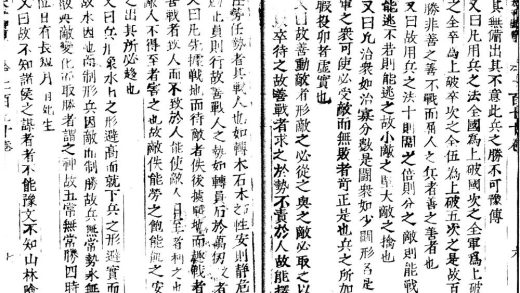 其無備出其不意此兵之勝不可豫傳
又曰凡用兵之法全國為上破國次之全軍為上破
之全卒為上破卒次之全伍為上破五次之是故百
勝非善之善不戰而屈人之兵者善之善者也
又曰故用兵之法十則圍之倍則分之敵則能戰
能逃不若則能逃之故小敵之堅大敵之擒也
又曰凡治衆如治寡分數是鬪衆如少鬪形名是
軍之衆可使必受敵而無敗者奇正是也兵之所加
投卵者虛實也
又曰故善動敵者形敵之必從之與之敵必取之以
以卒待之故善戰者求之於勢不責於人故能擇
任勢任勢者其戰人也如轉木石木石之性安則靜危
則止員則行故善戰人之勢如轉員石於萬仞者
又曰凡先據戰地而待敵者佚後據戰地而趍戰者
善戰者致人而不致於人能使敵人自至者利之也
敵人不得至者害之也故敵佚能勞之飽能飢之安
之出其所必趍也
又曰兵形象水水之形避高而就下兵之形避實而
故水因地而制形兵因敵而制勝故兵無常勢水無
能與敵變化而取勝者謂之神故五常無常勝四時
位日有長短月有死生
又曰故不知諸侯之謀者不能豫交不知山林險